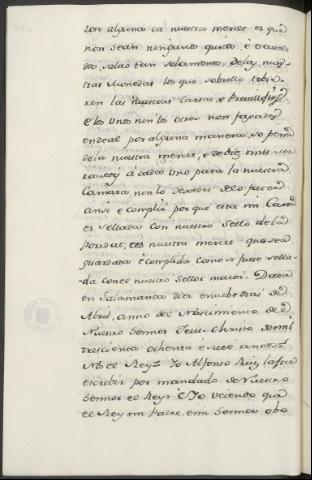 zon alguna ca nuestra merced es que
non sean ningunos quitos, e escusa-
dos, salvo tan solamente, de las nues-
tras Monedas los que sobrello tobie-
ren las nuestras Cartas, e Previllejos
e los unos nin los otros non fagades
endeal por alguna manera, so pena
de la nuestra merced, e de diez mill Ma-
ravedis a cada uno para la nuestra
Camara nin lo dexedes de lo facer
ansi e complir por que esta mi Carta
es sellada con nuestro Sello de la
Poridat, ca es nuestra merced que sea
guardada e complida como si fuese sella-
da con el nuestro Sello maior. Dada
en Salamanca dies e nuebe dias de
Abril, anno del Nascimiento de
Nuestro Sennor Jesu-Christo de mil
trescientos ochenta e seis annos =
Nos el Rey = Yo Alfonso Ruiz la fice
escrebir por mandado de Nuestro
Sennor el Rey = E Yo veiendo que
el Rey mi Padre e mi Sennor obo